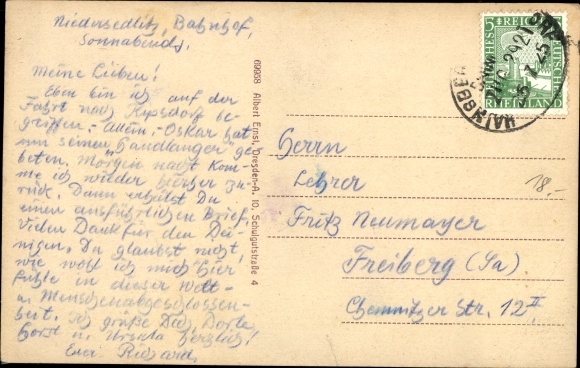 Niedersedlitz, Bahnhof,
Sonnabends.
Meine Lieben!
Eben bin ich auf der
Fahrt nach Kipsdorf be-
griffen. Allein. Oskar hat
um seinen "Handlanger" ge-
beten. Morgen nacht kom-
me ich wieder hierher zu-
rück. Dann erhältst Du
einen ausführlichen Brief.
Vielen Dank für den Dei-
nigen. Du glaubst nicht,
wie wohl ich mich hier
fühle in dieser Welt-
u. Menschenabgeschlossen-
heit. Ich grüße Dich, Dorle,
Horst u. Ursula herzlich!
Euer Richard.
69668 Albert Ernst, Dresden-A. 10, Schulgutstraße 4
DEUTSCHES REICH
5 5
RHEINLAND
HAINSBERG
ZUG 2921
25.7.25
Herrn
Lehrer
Fritz Neumayer
Freiberg (Sa)
Chemnitzer Str. 12 II
18.-